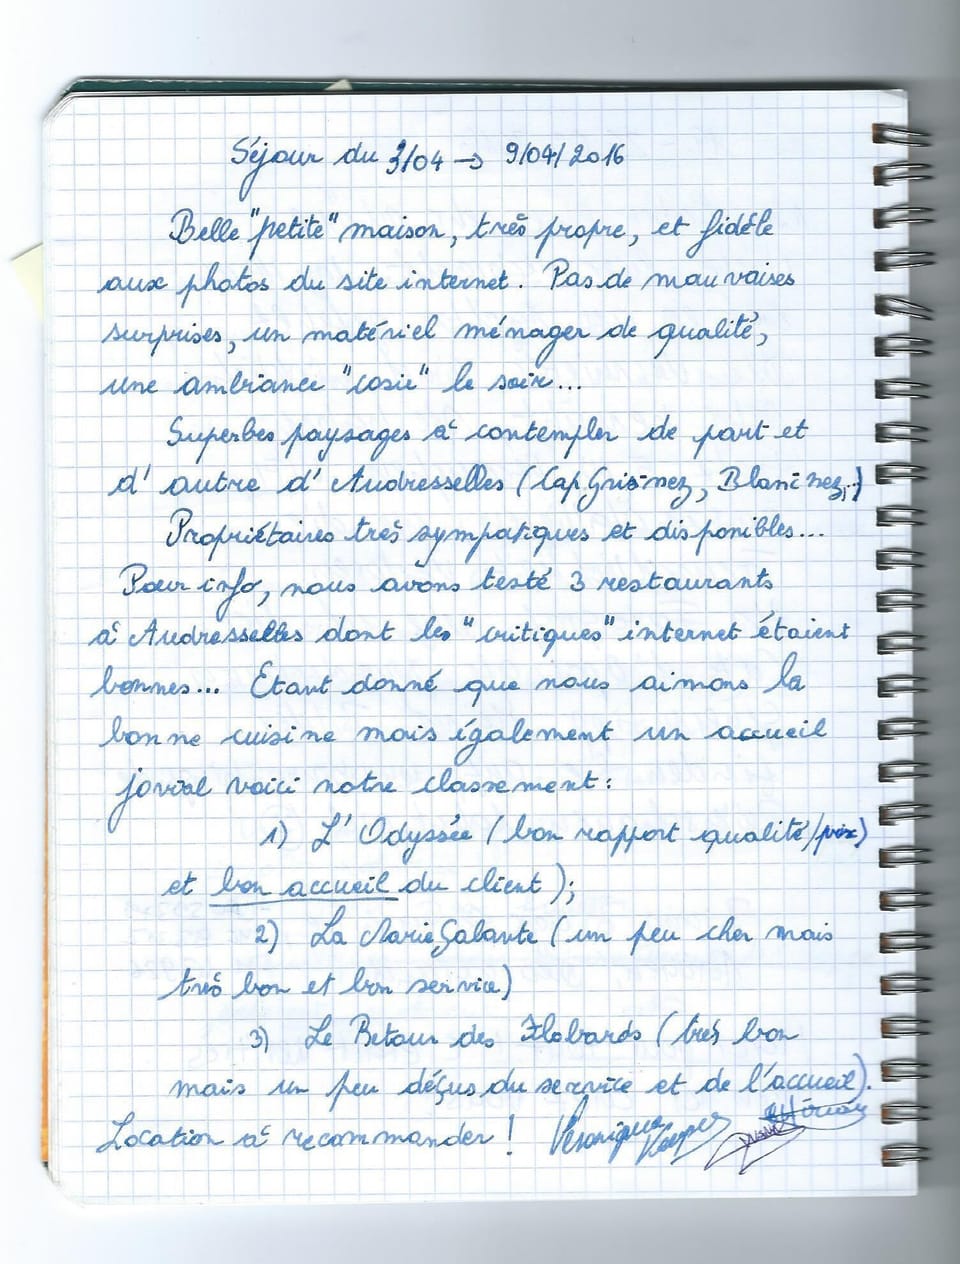 Séjour du 3/04 → 9/04/2016
Belle "petite" maison, très propre, et fidèle
aux photos du site internet. Pas de mauvaises
surprises, un matériel ménager de qualité,
une ambiance "cosie" le soir...
Superbes paysages à contempler de part et
d'autre d'Audresselles (Cap Gris-nez, Blanc nez,.)
Propriétaires très sympatiques et disponibles...
Pour info, nous avons testé 3 restaurants
à Audresselles dont les "critiques" internet étaient
bonnes... Etant donné que nous aimons la
bonne cuisine mais également un accueil
jovial voici notre classement :
1) L'Odyssée (bon rapport qualité/prix)
et bon accueil du client);
2) La Marie Galante (un peu cher mais
très bon et bon service)
3) Le Retour des Flobards (très bon
mais un peu déçus du service et de l'accueil).
Location à recommander ! Véronique